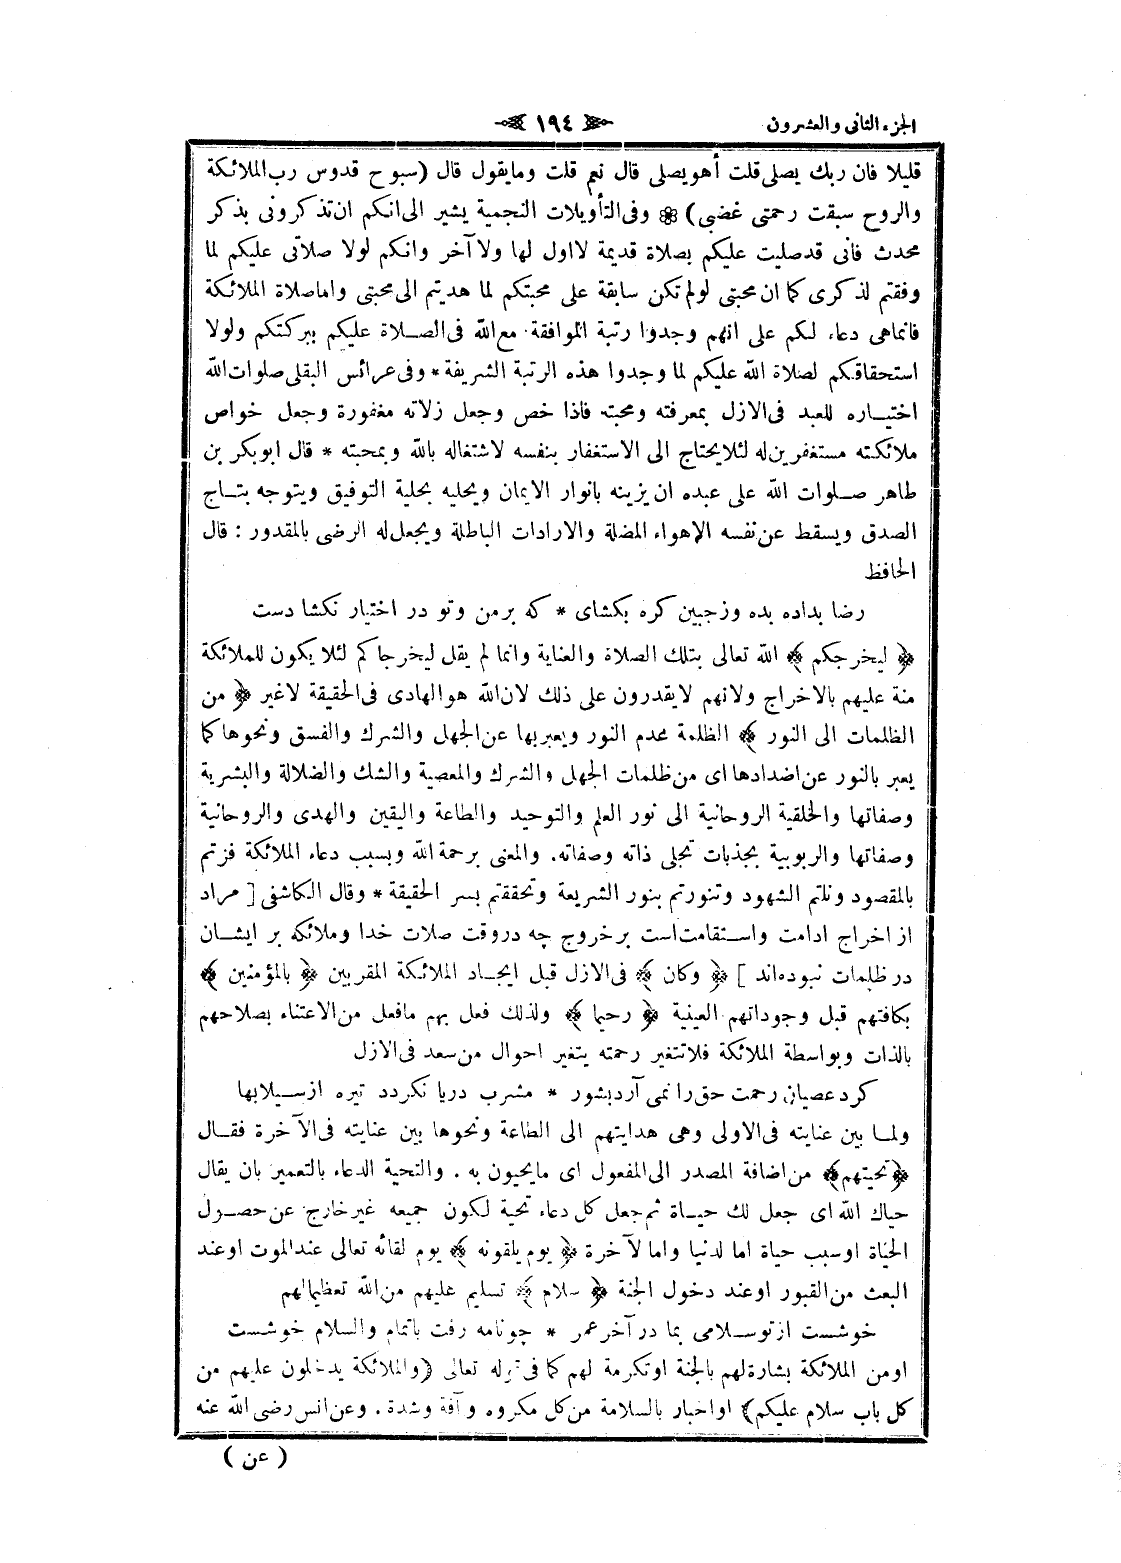 الجزء الثانى والعشرون
١٩٤
قليلا فان ربك يصلى قلت أهو يصلى قال نعم قلت وما يقول قال (سبوح قدوس رب الملائكة
والروح سبقت رحمتى غضبى) ❁ وفى التأويلات النجمية يشير الى انكم ان تذكرونى بذكر
محدث فأنى قد صليت عليكم بصلاة قديمة لا اول لها ولا آخر وانكم لولا صلاتى عليكم لما
وفقتم لذكرى كما ان محبتى لو لم تكن سابقة على محبتكم لما هديتم الى محبتى واما صلاة الملائكة
فانما هى دعاء لكم على انهم وجدوا رتبة الموافقة مع الله فى الصلاة عليكم ببركتكم ولولا
استحقاقكم لصلاة الله عليكم لما وجدوا هذه الرتبة الشريفة * وفى عرائس البقلى صلوات الله
اختياره للعبد فى الازل بمعرفته ومحبته فاذا خص وجعل زلاته مغفورة وجعل خواص
ملائكته مستغفرين له لئلا يحتاج الى الاستغفار بنفسه لاشتغاله بالله وبمحبته * قال ابو بكر بن
طاهر صلوات الله على عبده ان يزينه بانوار الايمان ويحليه بحلية التوفيق ويتوجه بتاج
الصدق ويسقط عن نفسه الاهواء المضلة والارادات الباطلة ويجعل له الرضى بالمقدور : قال
الحافظ
رضا بداده بده وز جبين كره بكشاى * كه بر من وتو در اختيار نكشا دست
﴿ ليخرجكم ﴾ الله تعالى بتلك الصلاة والعناية وانما لم يقل ليخرجاكم لئلا يكون للملائكة
منة عليهم بالاخراج ولانهم لا يقدرون على ذلك لان الله هو الهادى فى الحقيقة لا غير ﴿ من
الظلمات الى النور ﴾ الظلمة عدم النور ويعبر بها عن الجهل والشرك والفسق ونحوها كما
يعبر بالنور عن اضدادها اى من ظلمات الجهل والشرك والمعصية والشك والضلالة والبشرية
وصفاتها والخلقية الروحانية الى نور العلم والتوحيد والطاعة واليقين والهدى والروحانية
وصفاتها والربوبية بجذبات تجلى ذاته وصفاته. والمعنى برحمة الله وبسبب دعاء الملائكة فزتم
بالمقصود ونلتم الشهود وتنورتم بنور الشريعة وتحققتم بسر الحقيقة * وقال الكاشفى [ مراد
از اخراج ادامت واستقامت است بر خروج چه در وقت صلات خدا وملائكه بر ايشان
در ظلمات نبوده اند ] ﴿ وكان ﴾ فى الازل قبل ايجاد الملائكة المقربين ﴿ بالمؤمنين ﴾
بكافتهم قبل وجوداتهم العينية ﴿ رحيما ﴾ ولذلك فعل بهم ما فعل من الاعتناء بصلاحهم
بالذات وبواسطة الملائكة فلا تتغير رحمته بتغير احوال من سعد فى الازل
كرد عصيان رحمت حق را نمى آرد بشور * مشرب دريا نكردد تيره از سيلابها
ولما بين عنايته فى الاولى وهى هدايتهم الى الطاعة ونحوها بين عنايته فى الآخرة فقال
﴿ تحيتهم ﴾ من اضافة المصدر الى المفعول اى ما يحيون به . والتحية الدعاء بالتعمير بان يقال
حياك الله اى جعل لك حياة ثم جعل كل دعاء تحية لكون جميعه غير خارج عن حصول
الحياة او سبب حياة اما لدنيا واما لآخرة ﴿ يوم يلقونه ﴾ يوم لقائه تعالى عند الموت او عند
البعث من القبور او عند دخول الجنة ﴿ سلام ﴾ تسليم عليهم من الله تعظيما لهم
خوشست از تو سلامى بما در آخر عمر * چو نامه رفت باتمام والسلام خوشست
او من الملائكة بشارة لهم بالجنة او تكرمة لهم كما فى قوله تعالى (والملائكة يدخلون عليهم من
كل باب سلام عليكم) او اخبار بالسلامة من كل مكروه وآفة وشدة . وعن انس رضى الله عنه
( عن )